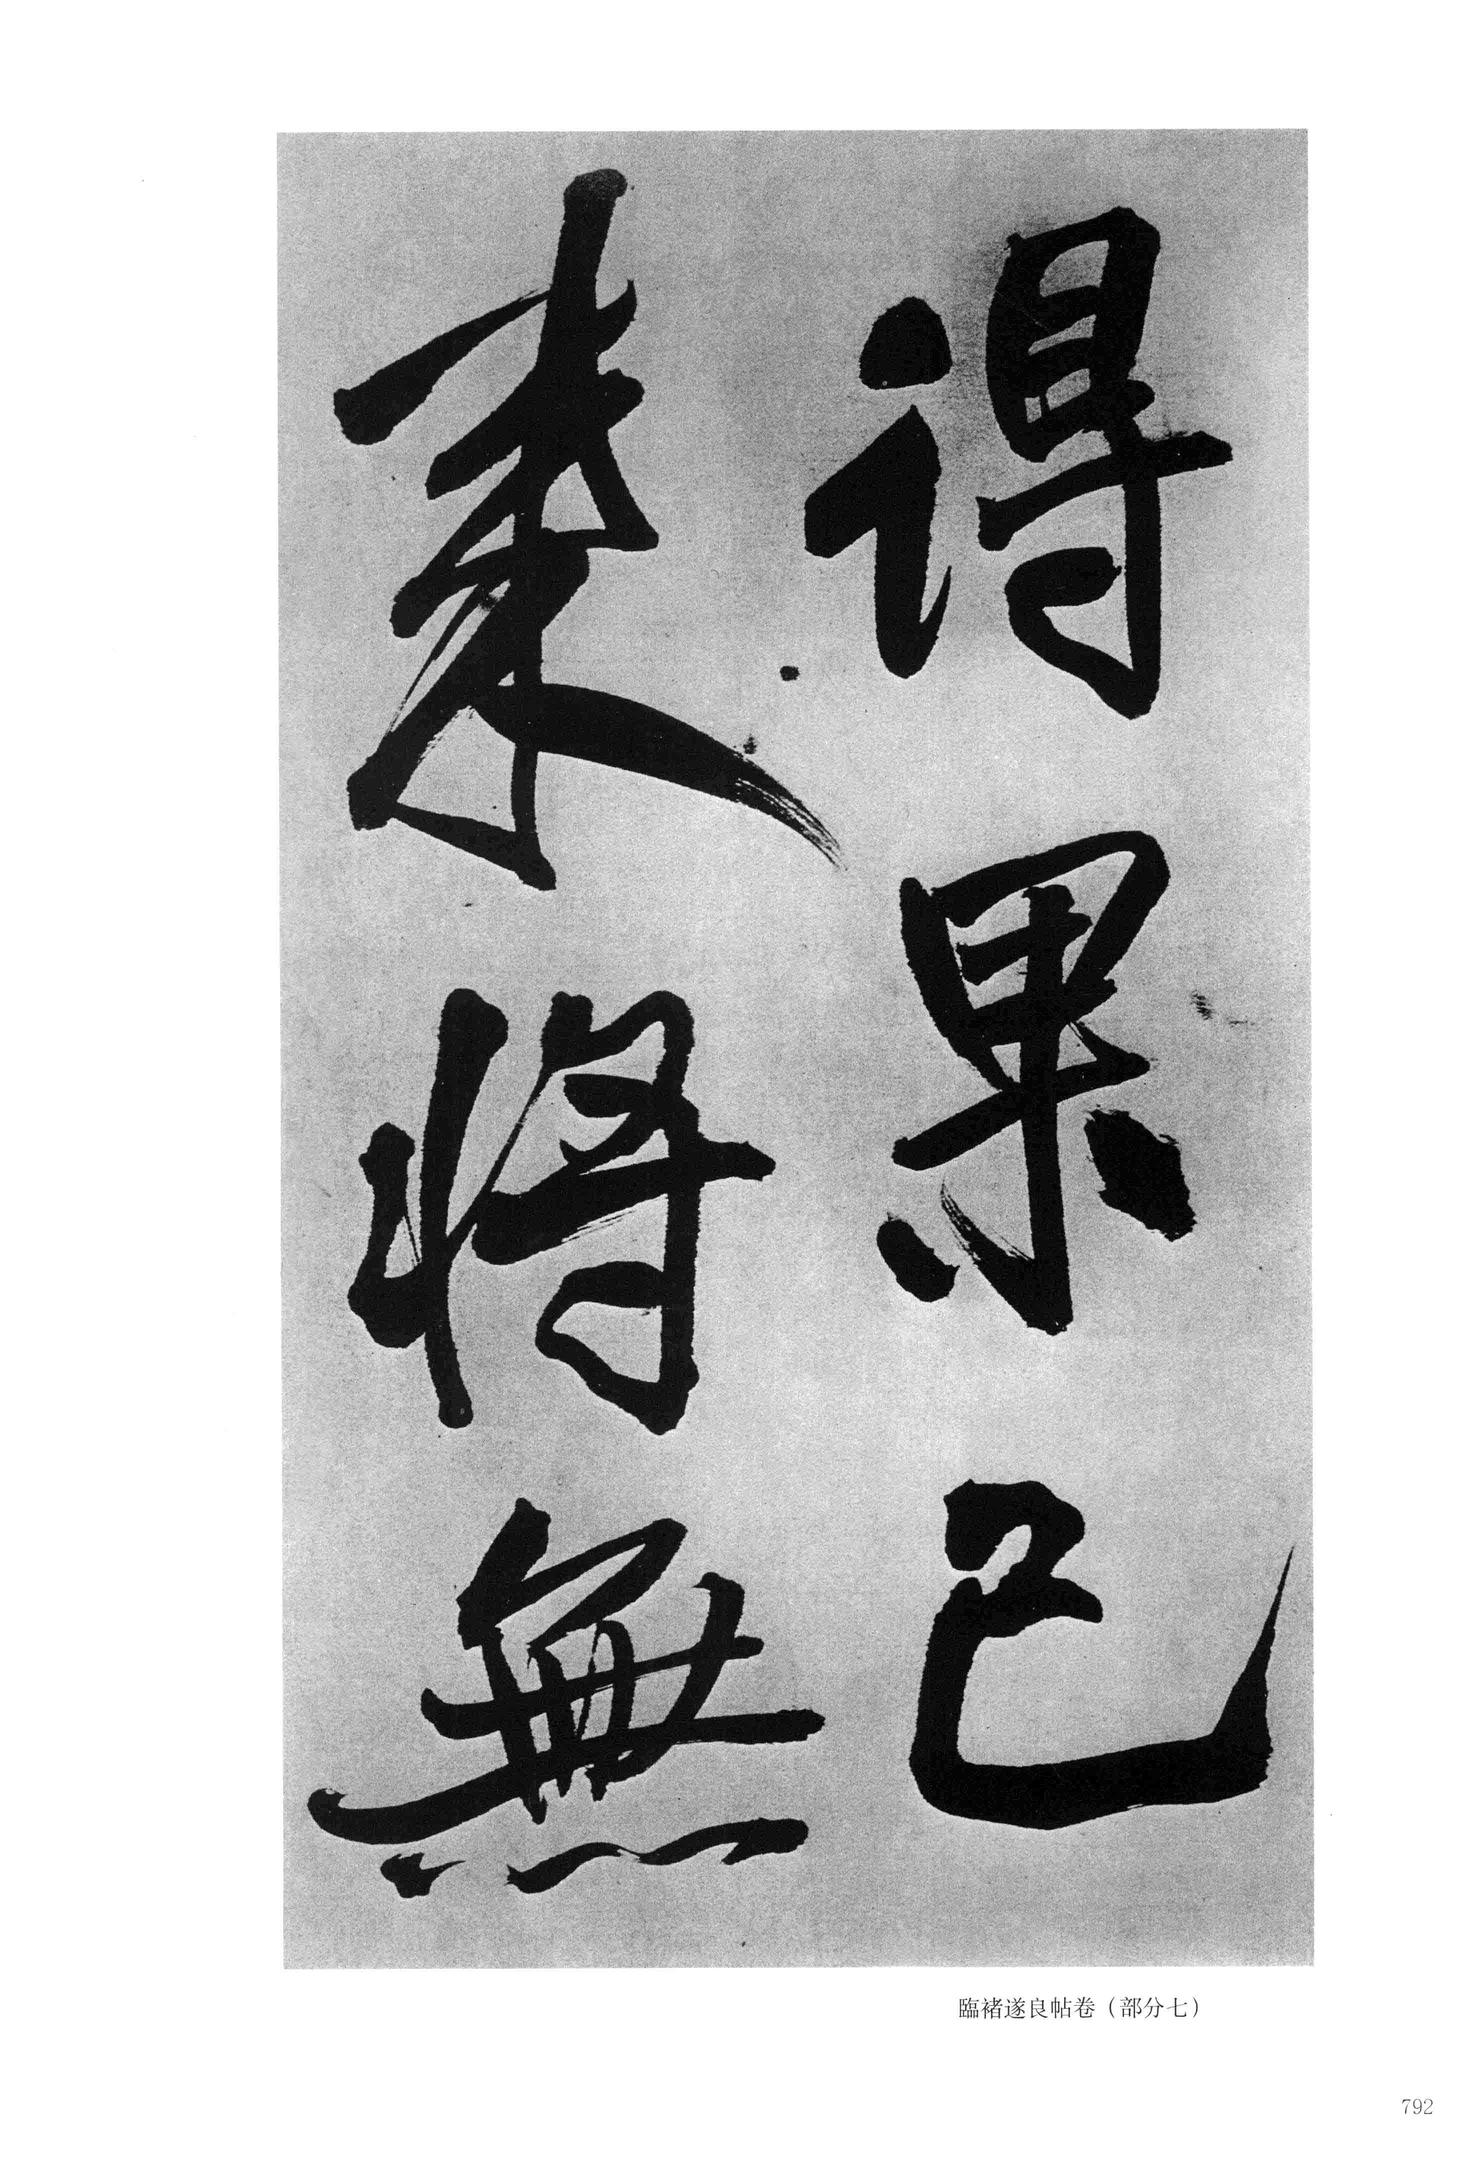 得果已
來將無
臨褚遂良帖卷（部分七）
792